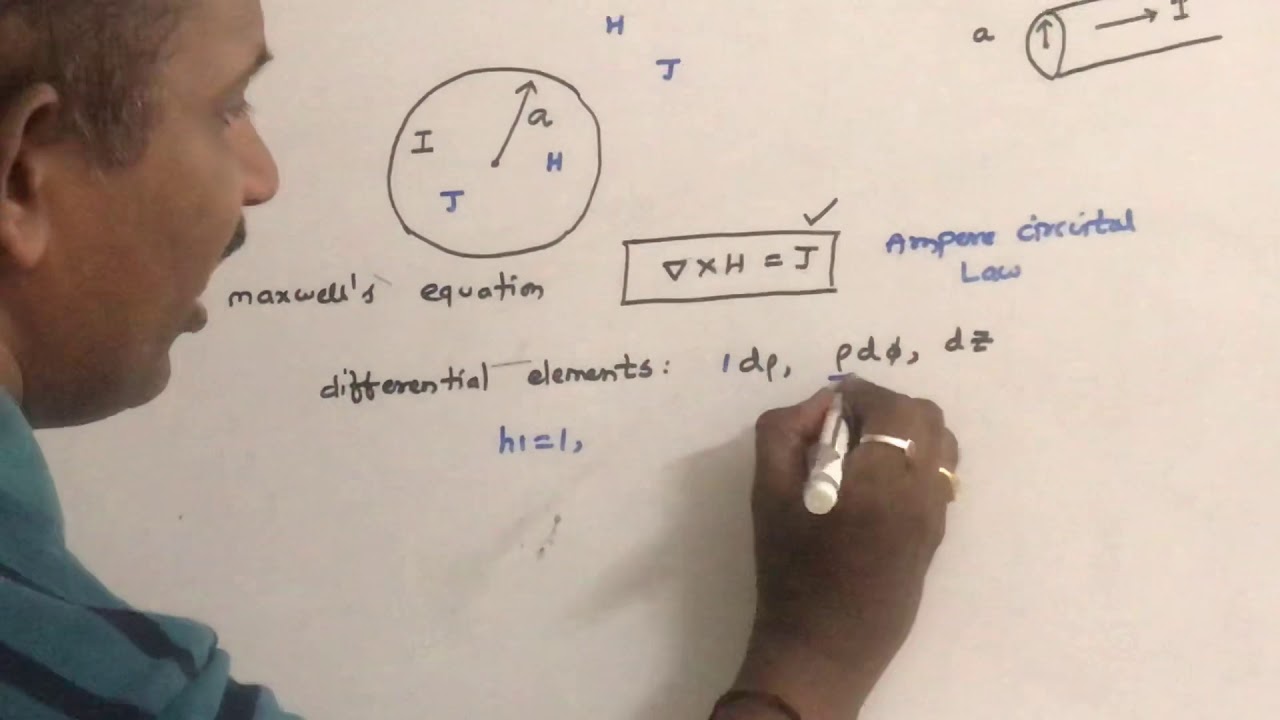 H
J
a
I
I
a
H
J
∇ × H = J
Ampere circuital
Law
maxwell's equation
differential elements: 1 dρ, ρdϕ, dz
h1=1,